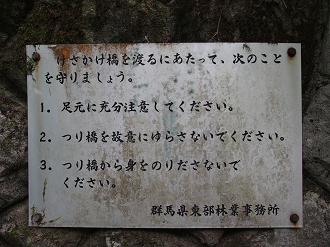 けさかけ橋を渡るにあたって、次のこと
を守りましょう。
1. 足元に充分注意してください。
2. つり橋を故意にゆらさないでください。
3. つり橋から身をのりださないで
ください。
群馬県東部林業事務所